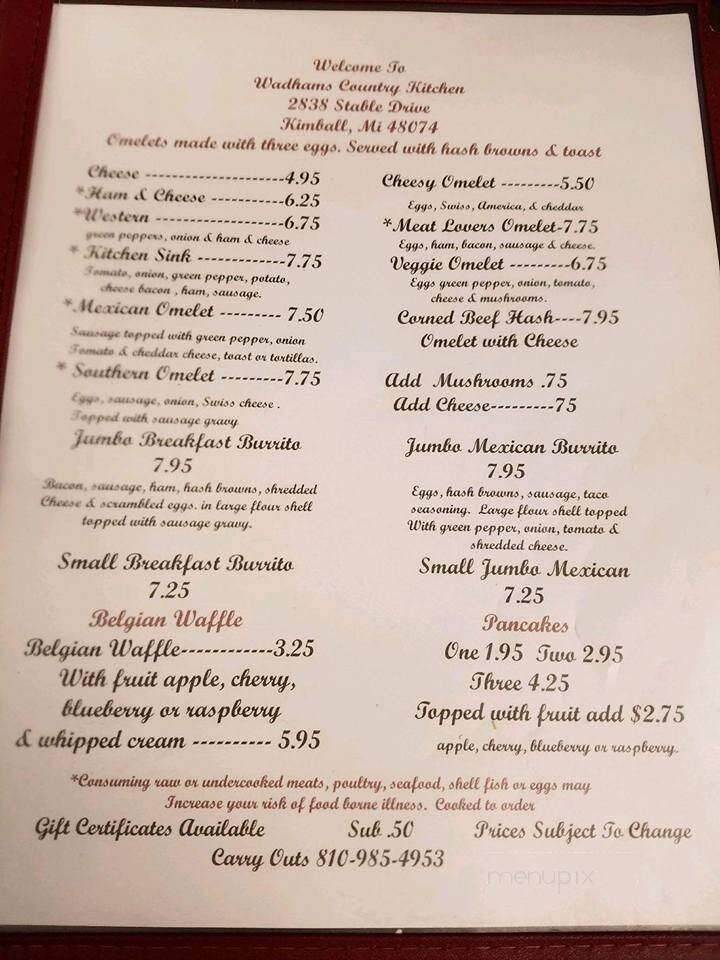 Welcome To
Wadhams Country Kitchen
2838 Stable Drive
Kimball, Mi 48074
Omelets made with three eggs. Served with hash browns & toast
Cheese --------------------4.95
*Ham & Cheese -----------6.25
*Western ------------------6.75
green peppers, onion & ham & cheese
* Kitchen Sink ------------7.75
Tomato, onion, green pepper, potato,
cheese bacon , ham, sausage.
*Mexican Omelet --------- 7.50
Sausage topped with green pepper, onion
Tomato & cheddar cheese, toast or tortillas.
* Southern Omelet --------7.75
Eggs, sausage, onion, Swiss cheese .
Topped with sausage gravy
Jumbo Breakfast Burrito
7.95
Bacon, sausage, ham, hash browns, shredded
Cheese & scrambled eggs. in large flour shell
topped with sausage gravy.
Small Breakfast Burrito
7.25
Belgian Waffle
Belgian Waffle------------3.25
With fruit apple, cherry,
blueberry or raspberry
& whipped cream ---------- 5.95
Cheesy Omelet ---------5.50
Eggs, Swiss, America, & cheddar
*Meat Lovers Omelet-7.75
Eggs, ham, bacon, sausage & cheese.
Veggie Omelet ---------6.75
Eggs green pepper, onion, tomato,
cheese & mushrooms.
Corned Beef Hash----7.95
Omelet with Cheese
Add Mushrooms .75
Add Cheese---------75
Jumbo Mexican Burrito
7.95
Eggs, hash browns, sausage, taco
seasoning. Large flour shell topped
With green pepper, onion, tomato &
shredded cheese.
Small Jumbo Mexican
7.25
Pancakes
One 1.95 Two 2.95
Three 4.25
Topped with fruit add $2.75
apple, cherry, blueberry or raspberry.
*Consuming raw or undercooked meats, poultry, seafood, shell fish or eggs may
Increase your risk of food borne illness. Cooked to order
Gift Certificates Available Sub .50 Prices Subject To Change
Carry Outs 810-985-4953
menupix